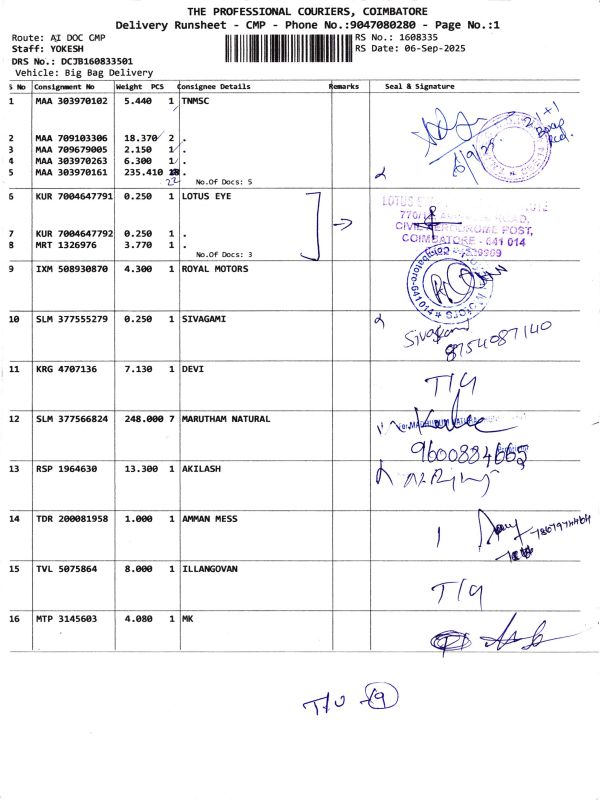 THE PROFESSIONAL COURIERS, COIMBATORE
Delivery Runsheet - CMP - Phone No.:9047080280 - Page No.:1
Route: AI DOC CMP
RS No.: 1608335
Staff: YOKESH
RS Date: 06-Sep-2025
DRS No.: DCJB160833501
Vehicle: Big Bag Delivery
S No Consignment No Weight PCS Consignee Details Remarks Seal & Signature
1 MAA 303970102 5.440 1 TNMSC
2 MAA 709103306 18.370 2 .
3 MAA 709679005 2.150 1 .
4 MAA 303970263 6.300 1 .
5 MAA 303970161 235.410 .
22
No.Of Docs: 5
21+1
6/9/25
6 KUR 7004647791 0.250 1 LOTUS EYE
7 KUR 7004647792 0.250 1 .
8 MRT 1326976 3.770 1 .
No.Of Docs: 3
CIVIL AERODROME POST,
COIMBATORE - 641 014
9 IXM 508930870 4.300 1 ROYAL MOTORS
10 SLM 377555279 0.250 1 SIVAGAMI
Sivagami
8754087140
11 KRG 4707136 7.130 1 DEVI
T/9
12 SLM 377566824 248.000 7 MARUTHAM NATURAL
9600884665
13 RSP 1964630 13.300 1 AKILASH
14 TDR 200081958 1.000 1 AMMAN MESS
15 TVL 5075864 8.000 1 ILLANGOVAN
T/9
16 MTP 3145603 4.080 1 MK